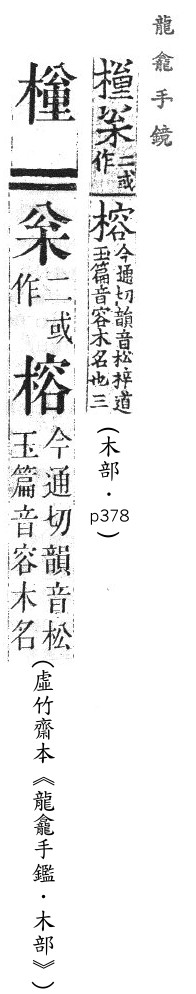 龍龕手鏡
枀二或作榕今通切韻音松梓道玉篇音容木名也三(木部·p378)
枀二或作榕今通切韻音松玉篇音容木名(虛竹齋本《龍龕手鑑·木部》)